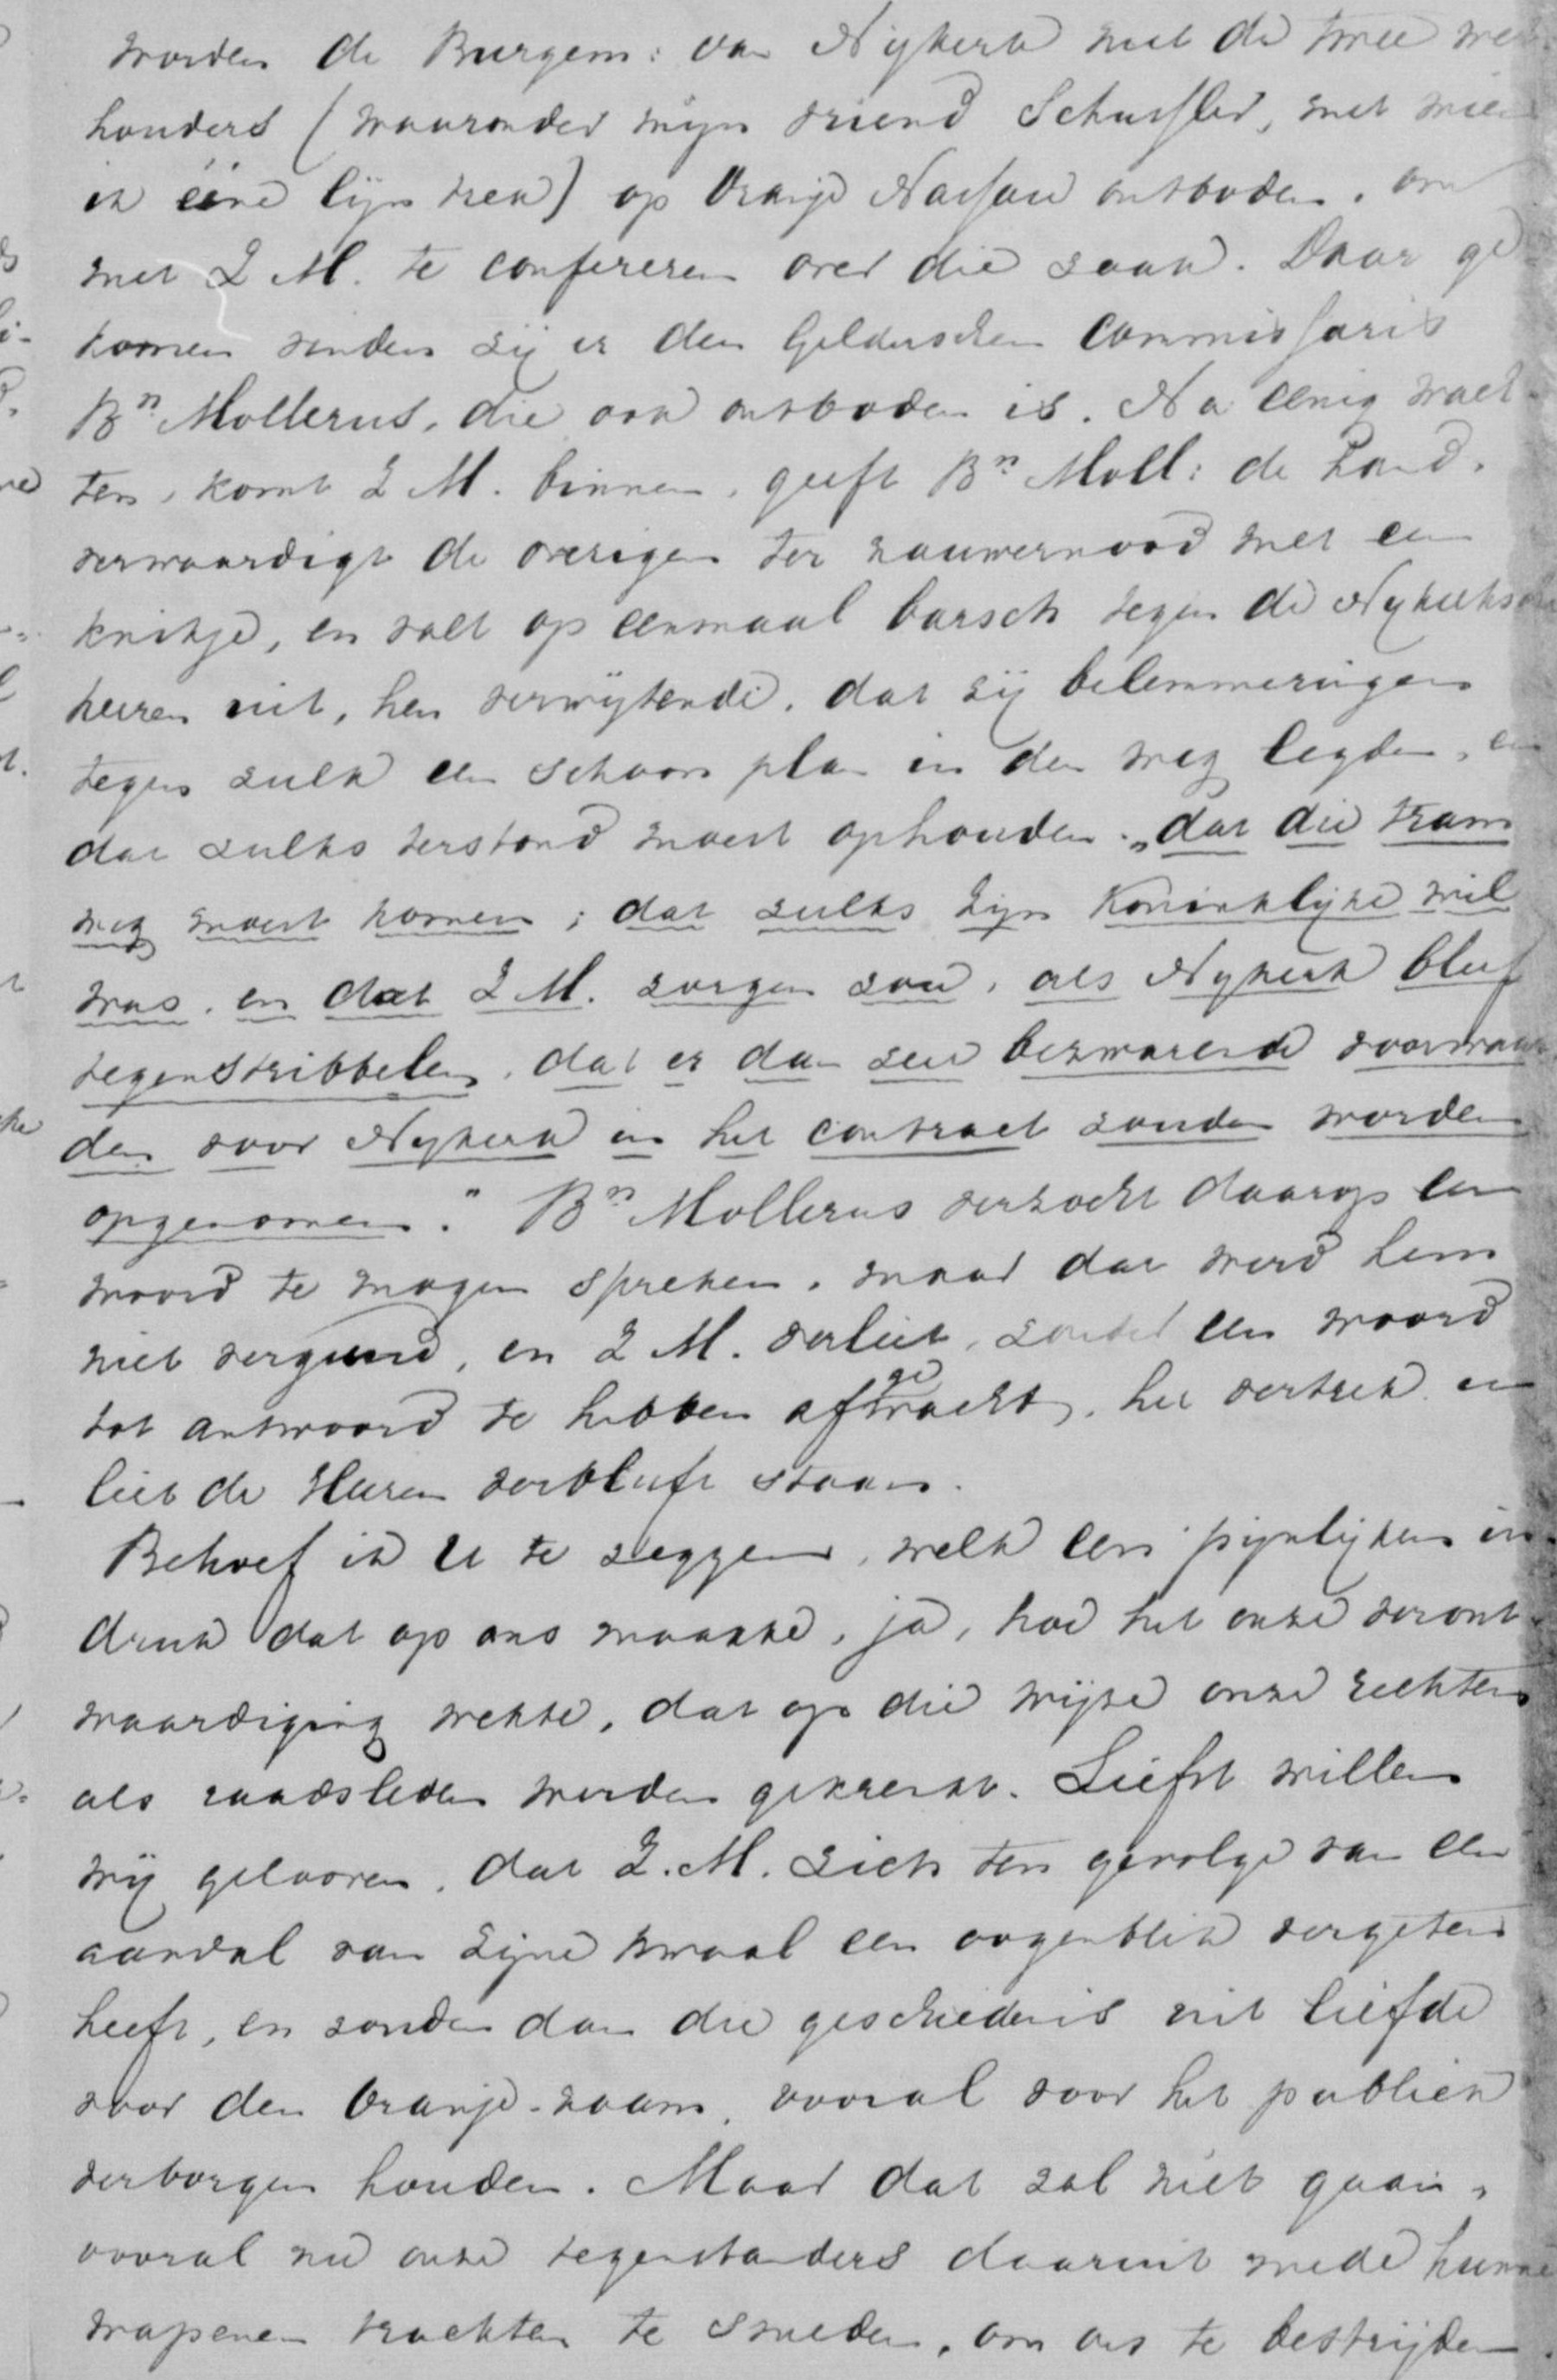 worden de Burgem: van Nykerk met de twee wet
houders (waaronder mijn vriend Schussler, met wien
ik ééne lijn trek) op Oranje Nassau ontboden, om
met Z M. te confereren over die zaak. Daar ge
komen vinden zij er den Gelderschen Commissaris
Bn Mollerus, die ook ontboden is. Na eenig wach
ten, komt Z M. binnen, geeft Bn Moll: de hand,
verwaardigt de overigen ter nauwernood met een
knikje, en valt op eenmaal barsch tegen de Nykerksche
heeren uit, hen verwijtende, dat zij belemmeringen
tegen zulk een schoon plan in den weg legden, en
dat zulks terstond moest ophouden. „dat die tram
weg moest komen; dat zulks Zijn Koninklijke wil
was, en dat Z M. zorgen zou, als Nykerk bleef
tegenstribbelen, dat er dan zeer bezwarende voorwaar
den voor Nykerk in het contract zouden worden
opgenomen." Bn Mollerus verzocht daarop een
woord te mogen spreken, maar dat werd hem
niet vergund, en Z M. verliet, zonder een woord
tot antwoord te hebben afgewacht, het vertrek en
liet de Heeren verbluft staan.
Behoef ik U te zeggen, welk een pijnlijken in
druk dat op ons maakte, ja, hoe het onze veront
waardiging wekte, dat op die wijze onze rechten
als raadsleden werden gekrenkt. Liefst willen
wij gelooven, dat Z. M. zich ten gevolge van een
aanval van zijne kwaal een oogenblik vergeten
heeft, en zouden dan die geschiedenis uit liefde
voor den Oranje-naam, vooral voor het publiek
verborgen houden. Maar dat zal niet gaan,
vooral nu onze tegenstanders daaruit mede hunne
wapenen trachten te smeden, om ons te bestrijden.